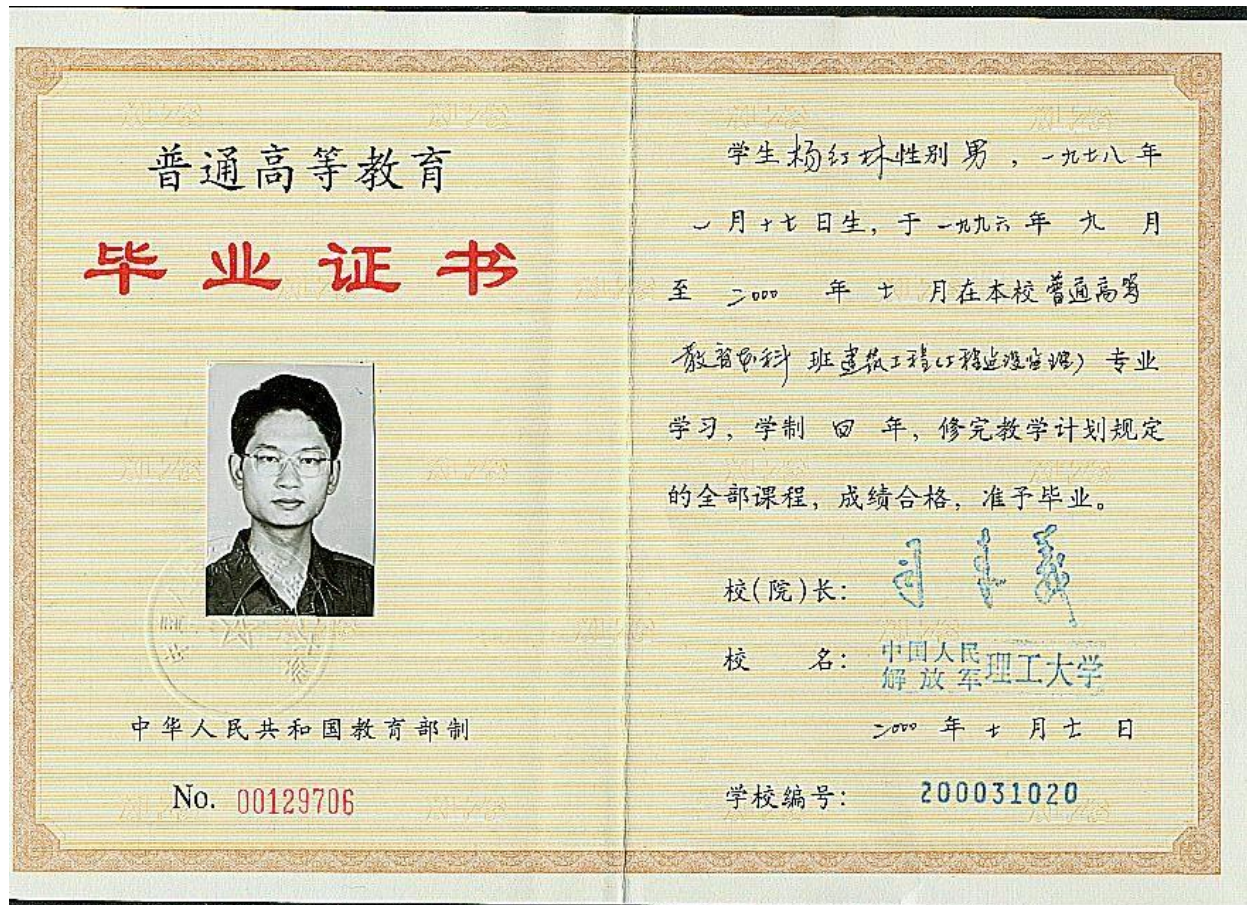 普通高等教育
毕业证书
中华人民共和国教育部制
No. 00129706
学生杨红林性别 男 ，一九七八年
一月十七日生，于一九九六年 九 月
至 二000 年 七 月在本校普通高等
教育本科 班建筑工程(工程建设监理) 专业
学习，学制 四 年，修完教学计划规定
的全部课程，成绩合格，准予毕业。
校(院)长：
校 名：中国人民解放军理工大学
二000 年 七 月 七 日
学校编号： 200031020